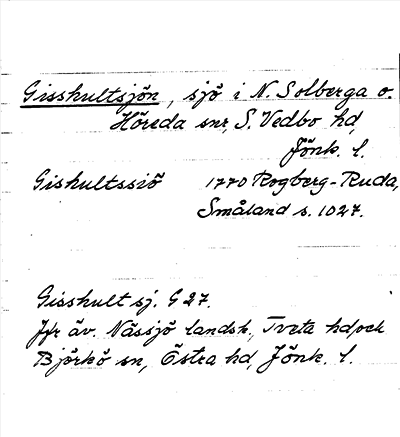 Gisshultsjön, sjö i N. Solberga o.
Höreda snr, S. Vedbo hd,
Jönk. l.
Gishultssiö 1770 Rogberg-Ruda,
Småland s. 1027.
Gisshult sj. G 27.
Jfr äv. Nässjö landsk., Tveta hd och
Björkö sn, Östra hd, Jönk. l.